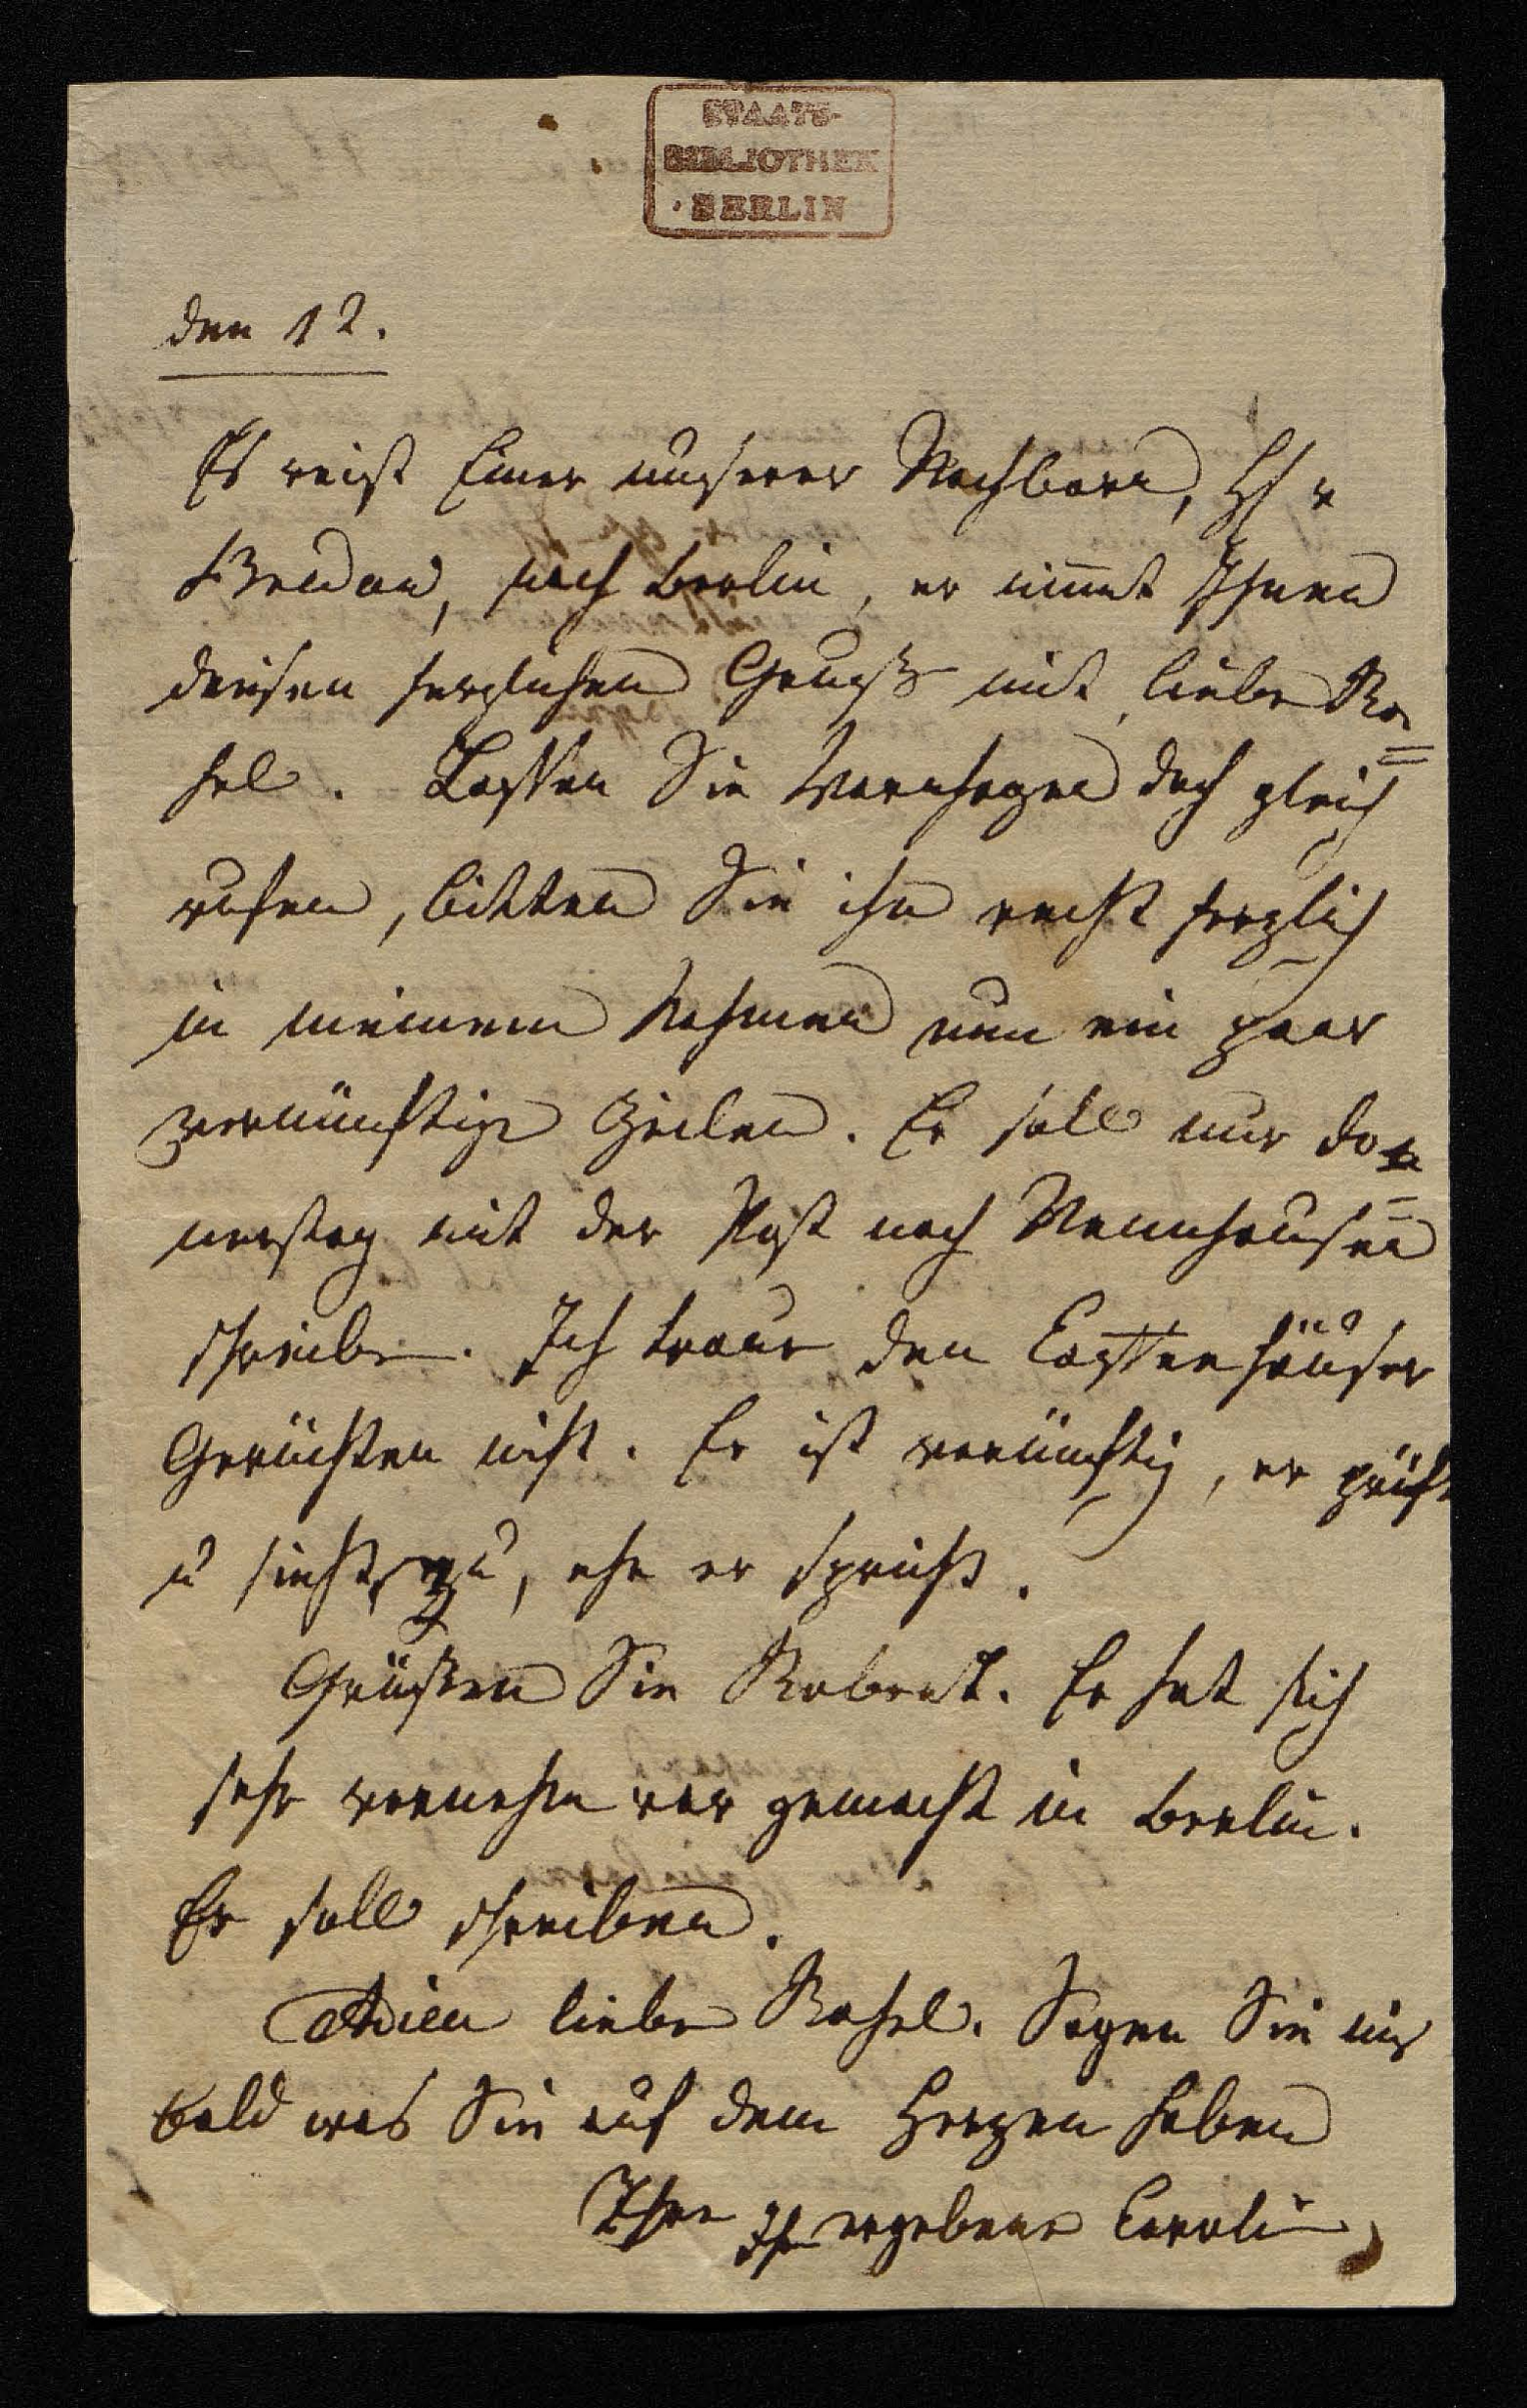 STAATS-
BIBLIOTHEK
BERLIN
den 12.
Es reist Einer unserer Nachbarn, H v
Bredow, nach Berlin, er nimmt Ihnen
diesen herzlichen Gruß mit, liebe Ra=
hel. Lassen Sie Varnhagen doch gleich
rufen, bitten Sie ihn recht herzlich
in meinem Nahmen um ein paar
vernünftige Zeilen. Er soll nur Do=
nerstag mit der Post nach Nennhausen
schreiben. Ich traue den
Gerüchten nicht. Er ist vernünftig, er prüft
u sieht zu, ehe er spricht.
Grüßen Sie Robert. Er hat sich
sehr gemacht in Berlin.
Er soll schreiben.
Adieu liebe Rahel. Sagen Sie mir
bald was Sie auf dem Herzen haben
Ihre ergebene Caroline